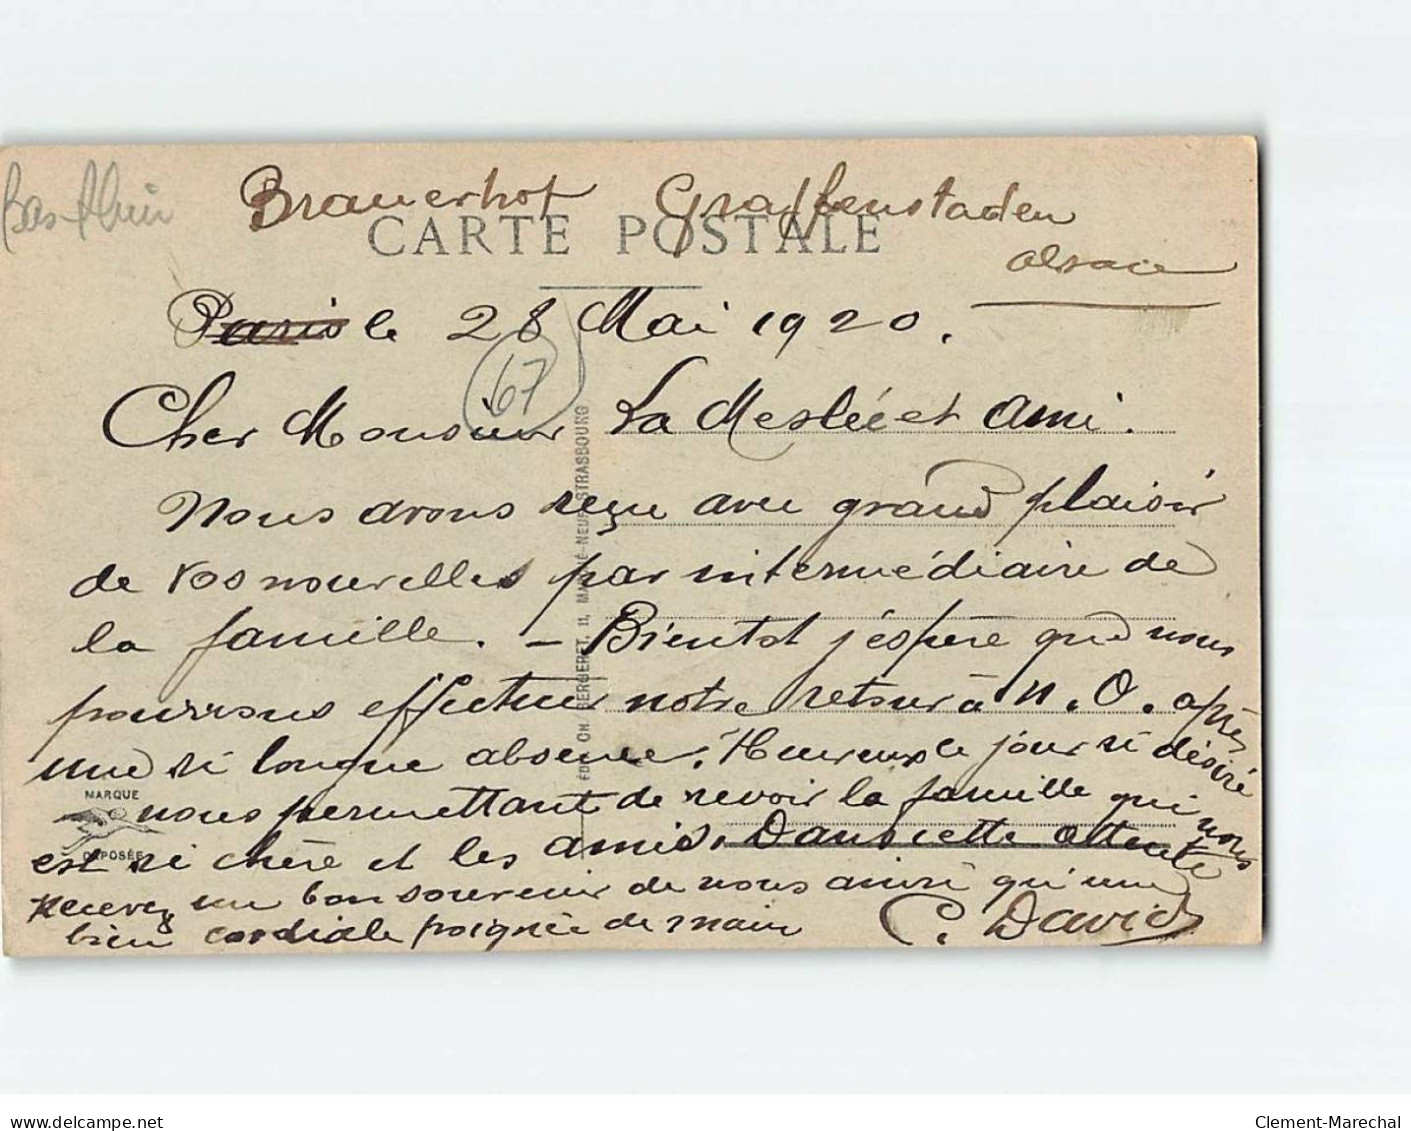 Bas-Rhin
Brauerhof Graffenstaden
CARTE POSTALE
Alsace
Paris le 28 Mai 1920.
67
Cher Monsieur La Meslée et ami.
Nous avons reçu avec grand plaisir
de vos nouvelles par intermédiaire de
la famille. – Bientot j'éspère que nous
pourrons effectuer notre retour à N. O. après
une si longue absence. Heureux le jour si désiré
nous permettant de revoir la famille qui nous
est si chère et les amis. Dans cette attente
Recevez un bon souvenir de nous ainsi qu'une
bien cordiale poignée de main C. David
MARQUE
DÉPOSÉE
ÉDIT. CH. BERGERET, 11, MARCHÉ-NEUF STRASBOURG
delcampe.net
Clement-Marechal